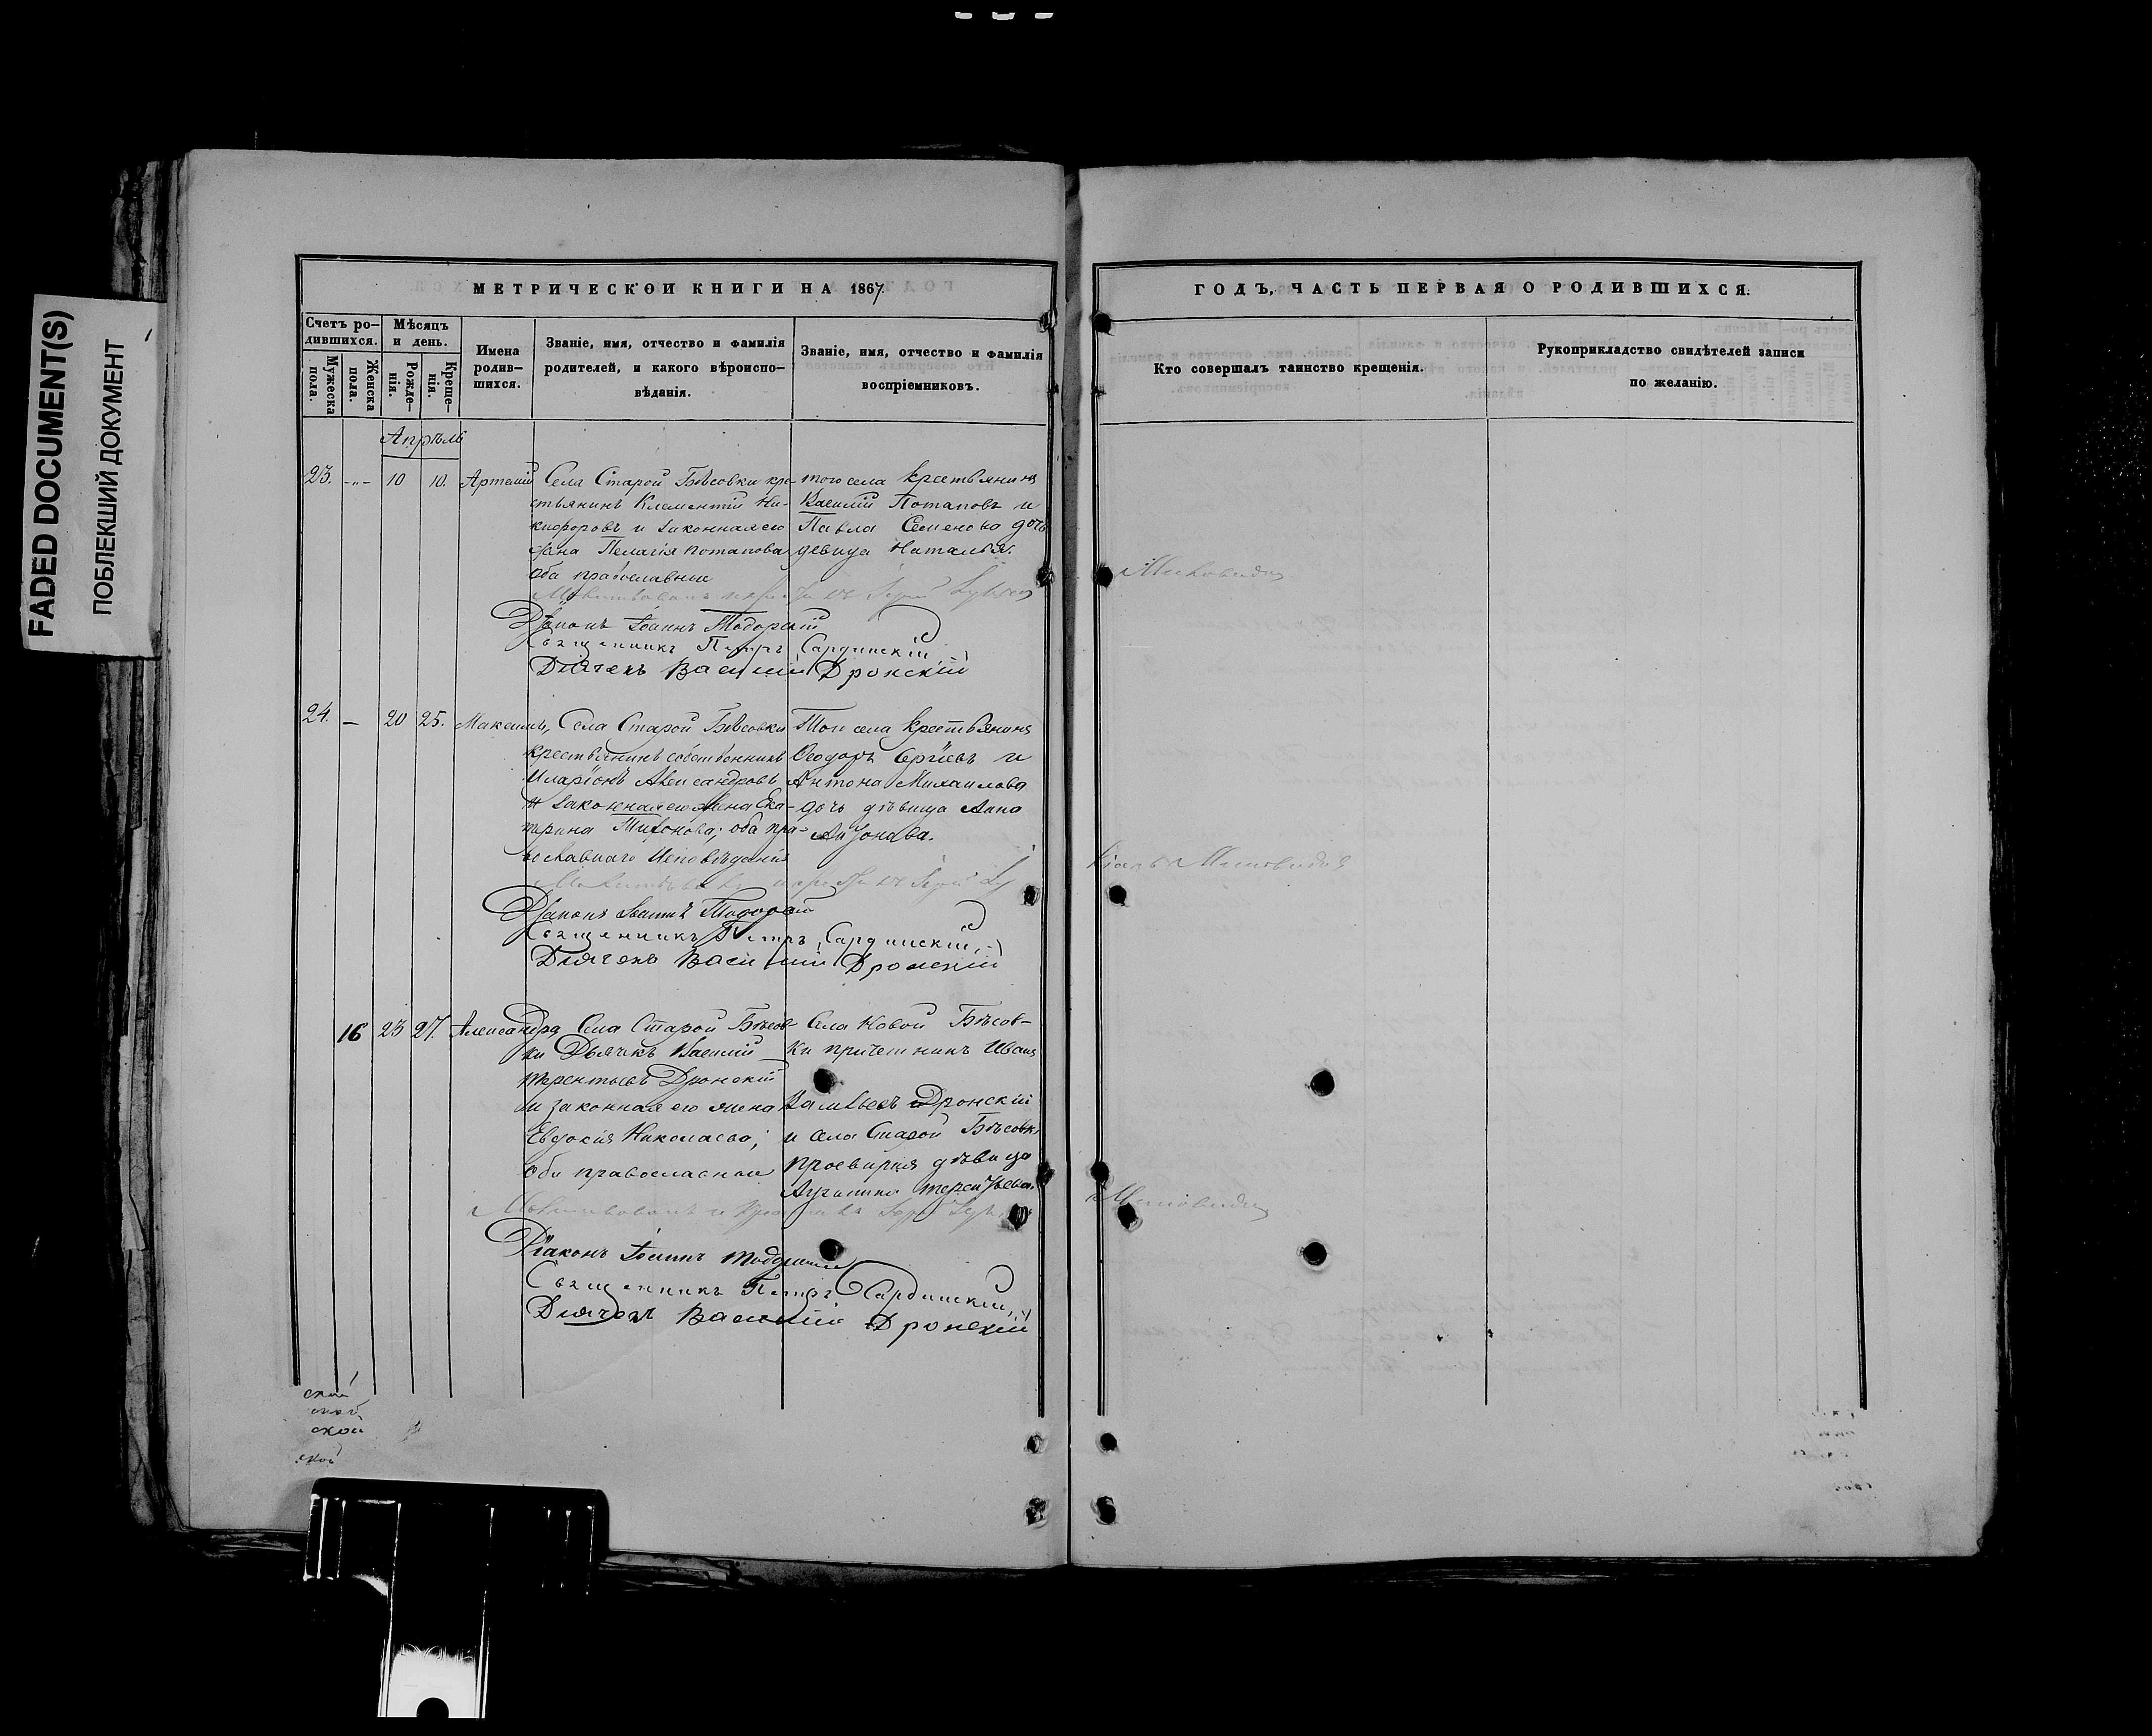 FADED DOCUMENT(S)
ПОБЛЕКШИЙ ДОКУМЕНТ
МЕТРИЧЕСКОЙ КНИГИ НА 1867
Счетъ ро-
дившихся.
Мѣсяцъ
и день.
Мужеска
пола.
Женска
пола.
Рожде-
нія.
Креще-
нія.
Имена
родив-
шихся.
Званіе, имя, отчество и фамилія
родителей, и какого вѣроиспо-
вѣданія.
Званіе, имя, отчество и фамилія
воспріемниковъ.
Апрѣль
23. -"- 10 10. Артемій
Села Старой Бѣсовки кре-
стьянинъ Климентій Ни-
кифоровъ и законная его
жена Пелагія Потапова
оба православные
того села крестьянинъ
Василій Потаповъ и
Павла Семенова дочь
девица Наталья.
Діаконъ Іоаннъ Тодорскій
Священникъ Петръ Сардинскій
Дьячекъ Василій Дронскій
24. — 20 25. Максимъ,
Села Старой Бѣсовки
крестьянинъ собственникъ
Иларіонъ Александровъ
и законная его жена Ека-
терина Тихонова; оба пра-
вославнаго Исповѣданія
Той села крестьянинъ
Ѳеодоръ Сергѣевъ и
Антона Михаилова
дочь дѣвица Анна
Антонова.
Діаконъ Іоаннъ Тодорскій
Священникъ Петръ Сардинскій
Дьячекъ Василій Дронскій
16 23 27. Александра
Села Старой Бѣсов-
ки Дьячекъ Василій
Терентьевъ Дронскій
и законная его жена
Евдокія Николаева;
Оба православные
Села Новой Бѣсов-
ки причетникъ Иванъ
Дронскій
и села Старой Бѣсовки
дѣвица
Терентьева.
Діаконъ Іоаннъ Тодорскій
Священникъ Петръ Сардинскій
Дьячекъ Василій Дронскій
ской
ской
ской
ской
ГОДЪ, ЧАСТЬ ПЕРВАЯ О РОДИВШИХСЯ.
Кто совершалъ таинство крещенія.
Рукоприкладство свидѣтелей записи
по желанію.